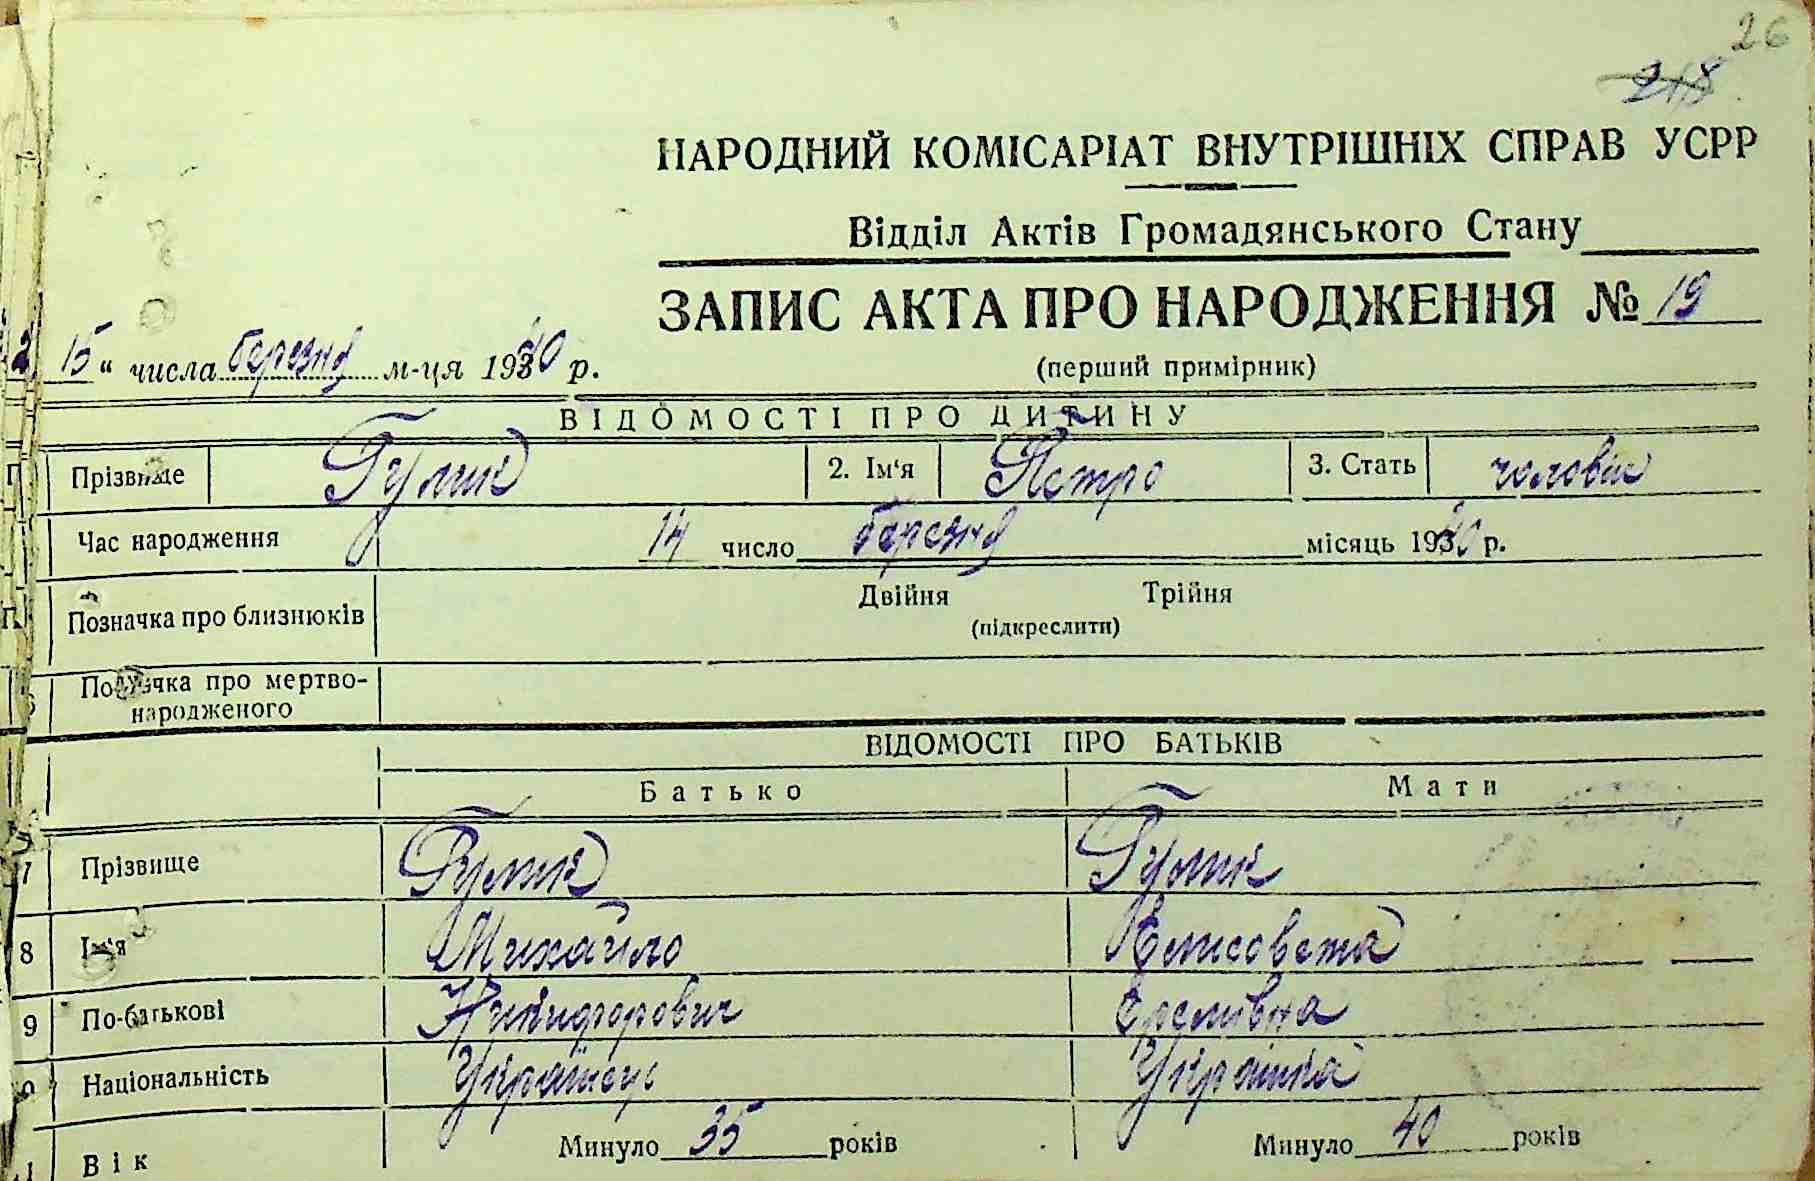 26
218
НАРОДНИЙ КОМІСАРІАТ ВНУТРІШНІХ СПРАВ УСРР
Відділ Актів Громадянського Стану
ЗАПИС АКТА ПРО НАРОДЖЕННЯ № 19
(перший примірник)
15 " числа березня м-ця 1940 р.
ВІДОМОСТІ ПРО ДИТИНУ
Прізвище Гулик 2. Ім'я Петро 3. Стать чоловіч
Час народження 14 число березня місяць 1940 р.
Позначка про близнюків Двійня Трійня
(підкреслити)
Позначка про мертво-
народженого
ВІДОМОСТІ ПРО БАТЬКІВ
Батько Мати
7 Прізвище Гулик Гулик
8 Ім'я Михайло Елисовета
9 По-батькові Никифорович Єремівна
Національність Українець Українка
Вік Минуло 35 років Минуло 40 років